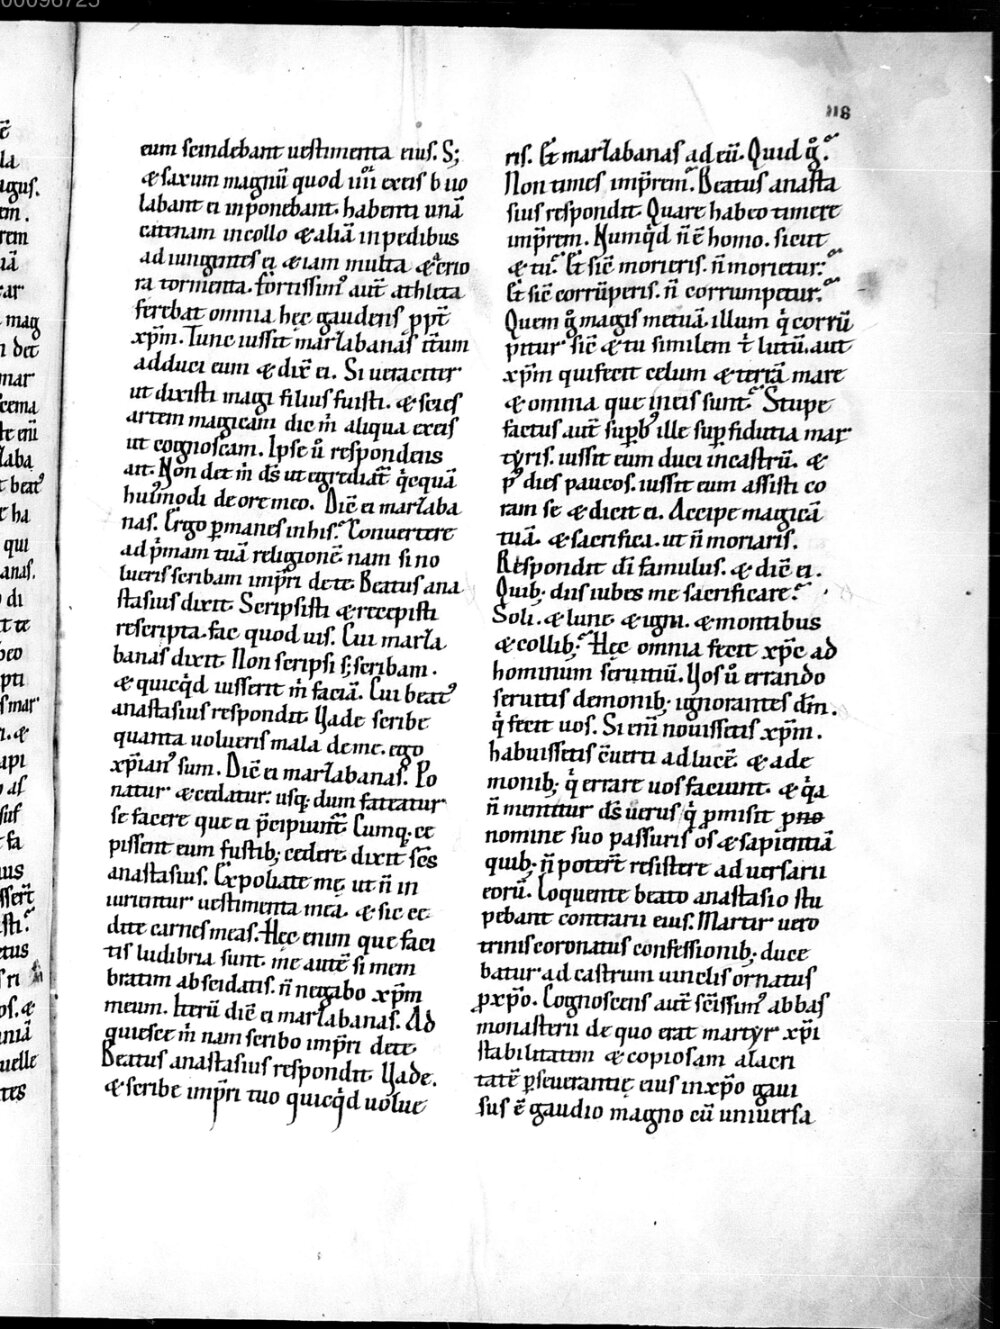 118
eum scindebant uestimenta eius. S;
& saxum magnũ quod iiii ex eis b uo
labant ei inponebant. habenti unã
catenam in collo & aliã in pedibus
adiungentes ei & iam multa & erio
ra tormenta. fortissim' aut̃ athleta
ferebat omnia hęc gaudens ꝓpt̃
xp̃m. Tunc iussit marzabanas itũm
adduci eum & dix̃ ei. Si ueraciter
ut dixisti magi filius fuisti. & scies
artem magicam dic m̃ aliqua ex eis
ut cognoscam. Ipse ũ respondens
ait. Non det m̃ ds̃ ut egrediat̃ q̃cquã
hui'modi de ore meo. Dix̃ ei marzaba
nas. Ergo ꝑmanes in his? Conuertere
ad p̃mam tuã religionẽ nam si no
lueris scribam imp̃ri de te. Beatus ana
stasius dixit. Scripsisti & recepisti
rescripta. fac quod uis. Cui marza
banas dixit. Non scripsi s; scribam.
& quicq̃d iusserit m̃ faciã. Cui beat'
anastasius respondit. Vade scribe
quanta uolueris mala de me. ego
xp̃ian' sum. Dix̃ ei marzabanas. Po
natur & cedatur. usq; dum fateatur
se facere que ei p̃cipiunt̃. Cumq; ce
pissent eum fustib; cedere. dixit sc̃s
anastasius. Expoliate me. ut ñ in
iurientur uestimenta mea. & sic ce
dite carnes meas. Hęc enim que faci
tis ludibria sunt. me autẽ si mem
bratim abscidatis. ñ negabo xp̃m
meum. Iterũ dix̃ ei marzabanas. Ad
quiesce m̃ nam scribo imp̃ri de te.
Beatus anastasius respondit. Vade.
& scribe imp̃ri tuo quicq̃d uolue
ris. Et marzabanas ad eũ. Quid g̊?
Non times imp̃rem? Beatus anasta
sius respondit. Quare habeo timere
imp̃rem. Numq̃d ñ ẽ homo. sicut
& tu? Et sic̃ morieris. ñ morietur?
Et sic̃ corrũperis. ñ corrumpetur?
Quem g̊ magis metuã. illum q̃ corrũ
pitur sic̃ & tu similem t̃ lutũ. aut
xp̃m qui fecit celum & terrã mare
& omnia que in eis sunt? Stupe
factus aut̃ suꝑb' ille suꝑ fidutia mar
tyris. iussit eum duci in castrũ. &
p' dies paucos. iussit eum assisti co
ram se & dicit ei. Accipe magicã
tuã. & sacrifica. ut ñ moriaris.
Respondit dĩ famulus. & dix̃ ei.
Quib; diis iubes me sacrificare?
Soli. & lunę & igni. & montibus
& collib;? Hęc omnia fecit xp̃c ad
hominum seruitiũ. Vos ũ errando
seruitis demonib; ignorantes dm̃.
q̃ fecit uos. Si enĩ nouissetis xp̃m.
habuissetis c̃uerti ad lucẽ. & a de
monib; q̃ errare uos faciunt. & q̃a
ñ mentitur ds̃ uerus q̃ ꝓmisit pro
nomine suo passuris os & sapientiã
quib; ñ poterit̃ resistere aduersarii
eorũ. Loquente beato anastasio stu
pebant contrarii eius. Martir uero
trinis coronatus confessionib; duce
batur ad castrum uinclis ornatus
ꝓ xp̃o. Cognoscens aut̃ sc̃issim' abbas
monasterii de quo erat martyr xp̃i
stabilitatem & copiosam alacri
tatẽ ꝑseuerantię eius in xp̃o gaui
sus ẽ gaudio magno cũ uniuersa